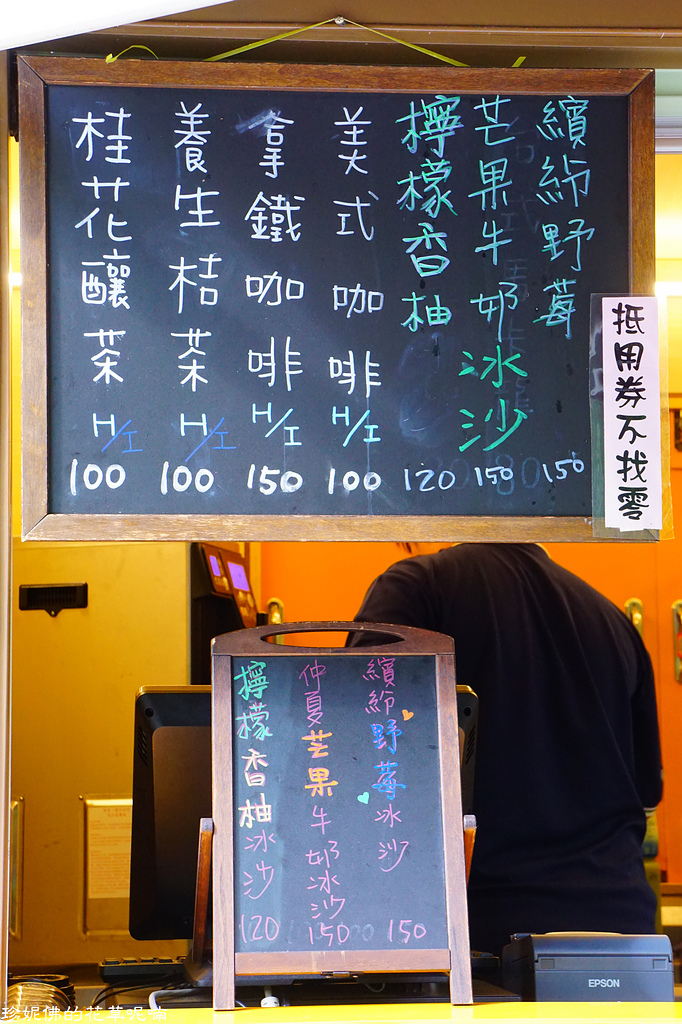 繽紛野莓 150
芒果牛奶冰沙 150
檸檬香柚 120
美式咖啡 H/I 100
拿鐵咖啡 H/I 150
養生桔茶 H/I 100
桂花釀茶 H/I 100
抵用券不找零
繽紛野莓冰沙 150
仲夏芒果牛奶冰沙 150
檸檬香柚冰沙 120
EPSON
珍妮佛的花草呢喃